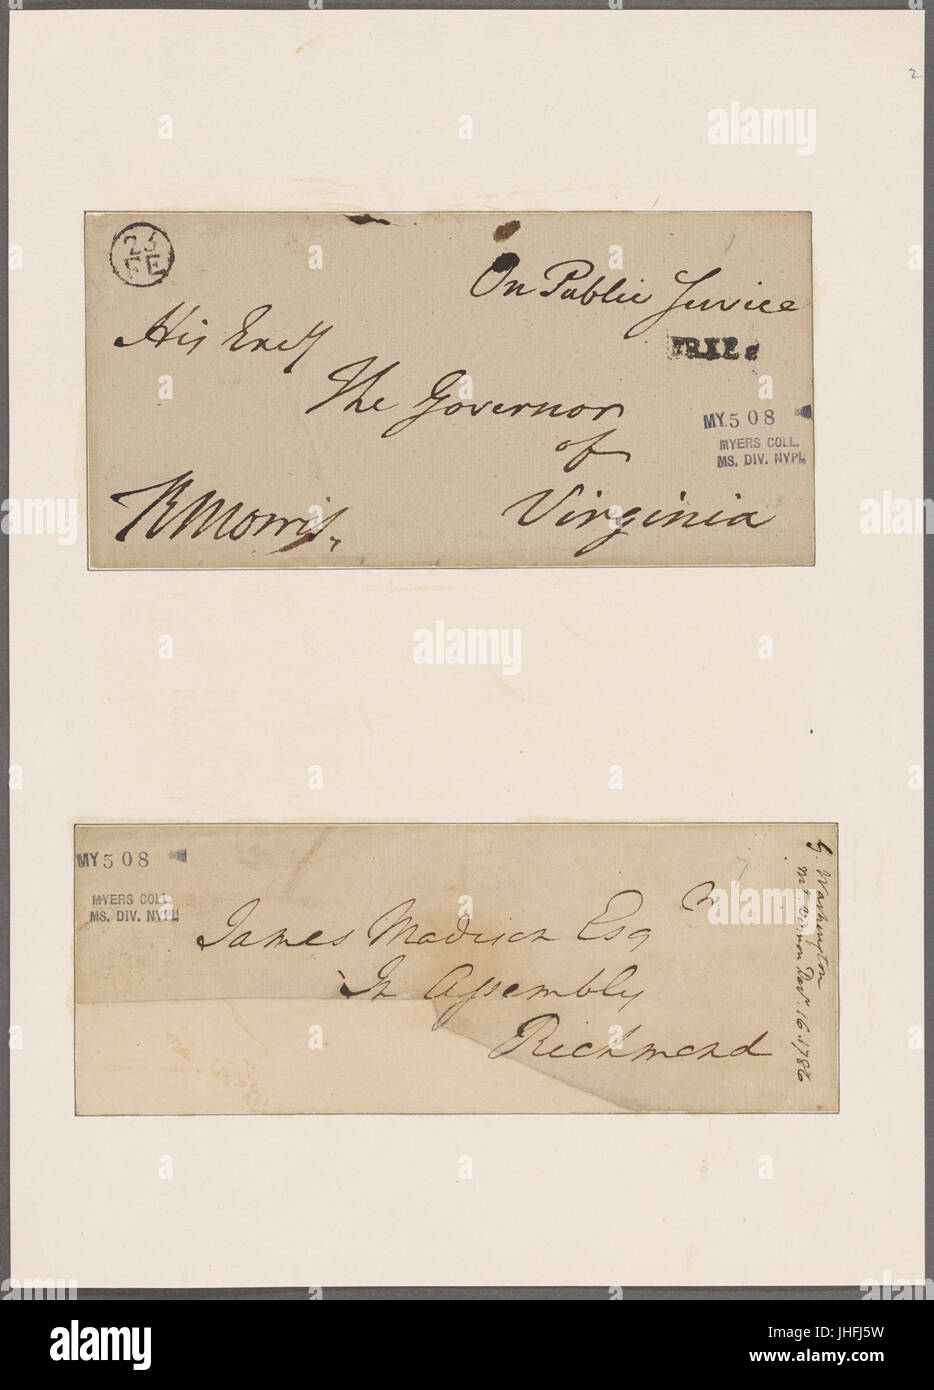 2
26
FE
On Public Service
His Excy
FREE
The Governor
of
Virginia
RMorris.
MY.508
MYERS COLL.
MS. DIV. NYPL
MY 508
MYERS COLL.
MS. DIV. NYPL
James Madison Esqr
In Assembly
Richmond
G. Washington
Mt. Vernon Decr. 16. 1786
alamy
alamy
Image ID: JHFJ5W
www.alamy.com